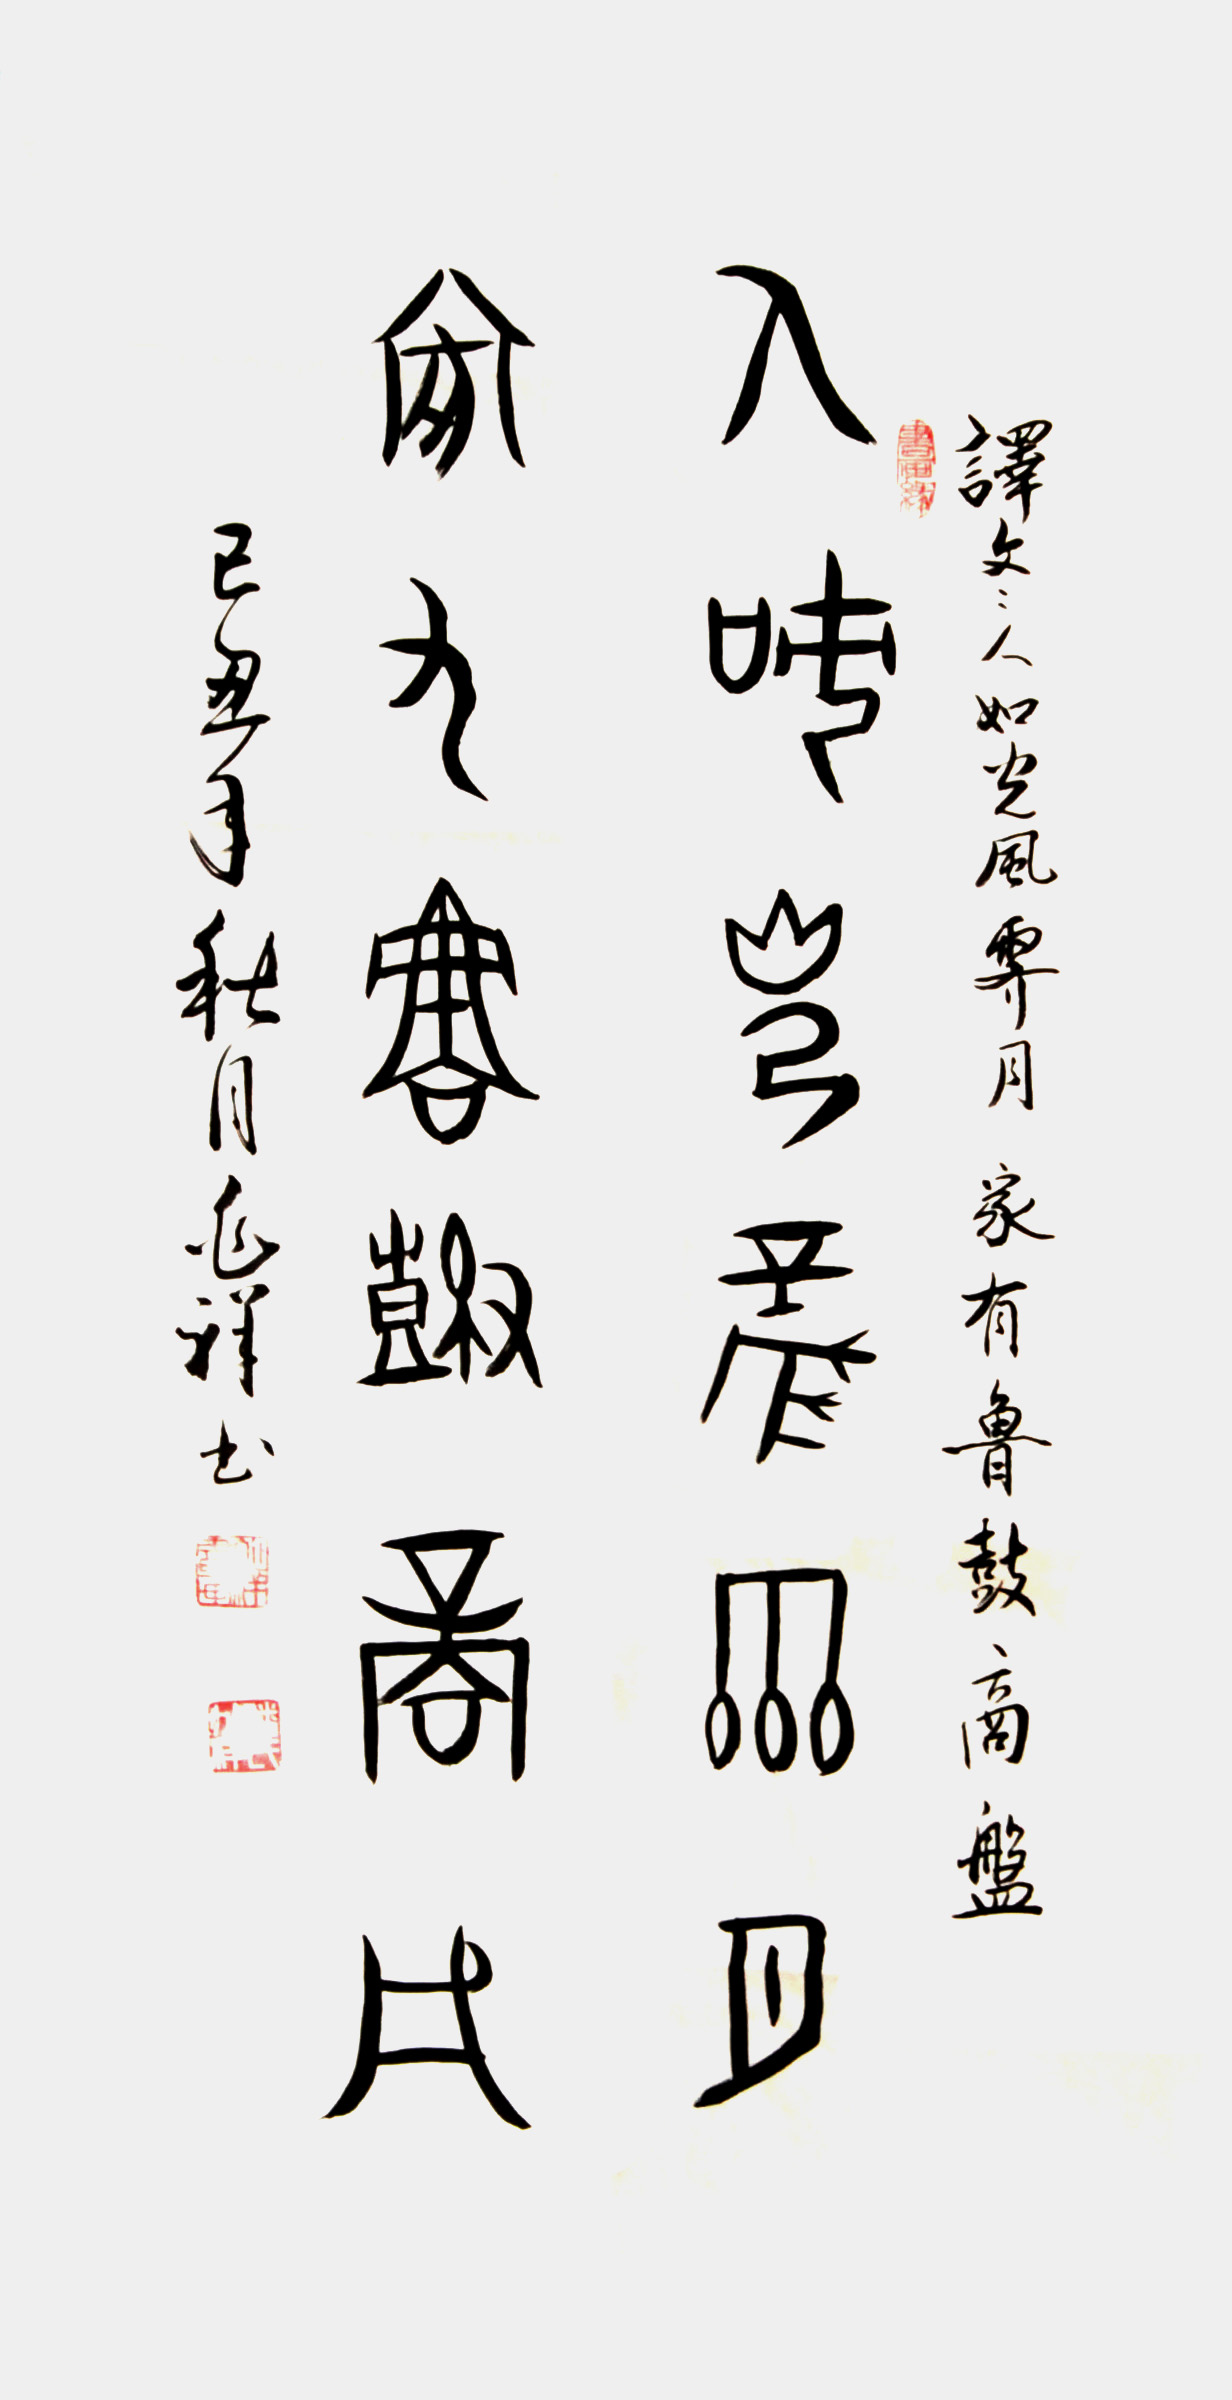 譯文：人如光風霽月 家有魯鼓商盤
人如光風霽月
家有魯鼓商盤
己丑年秋月 祥书